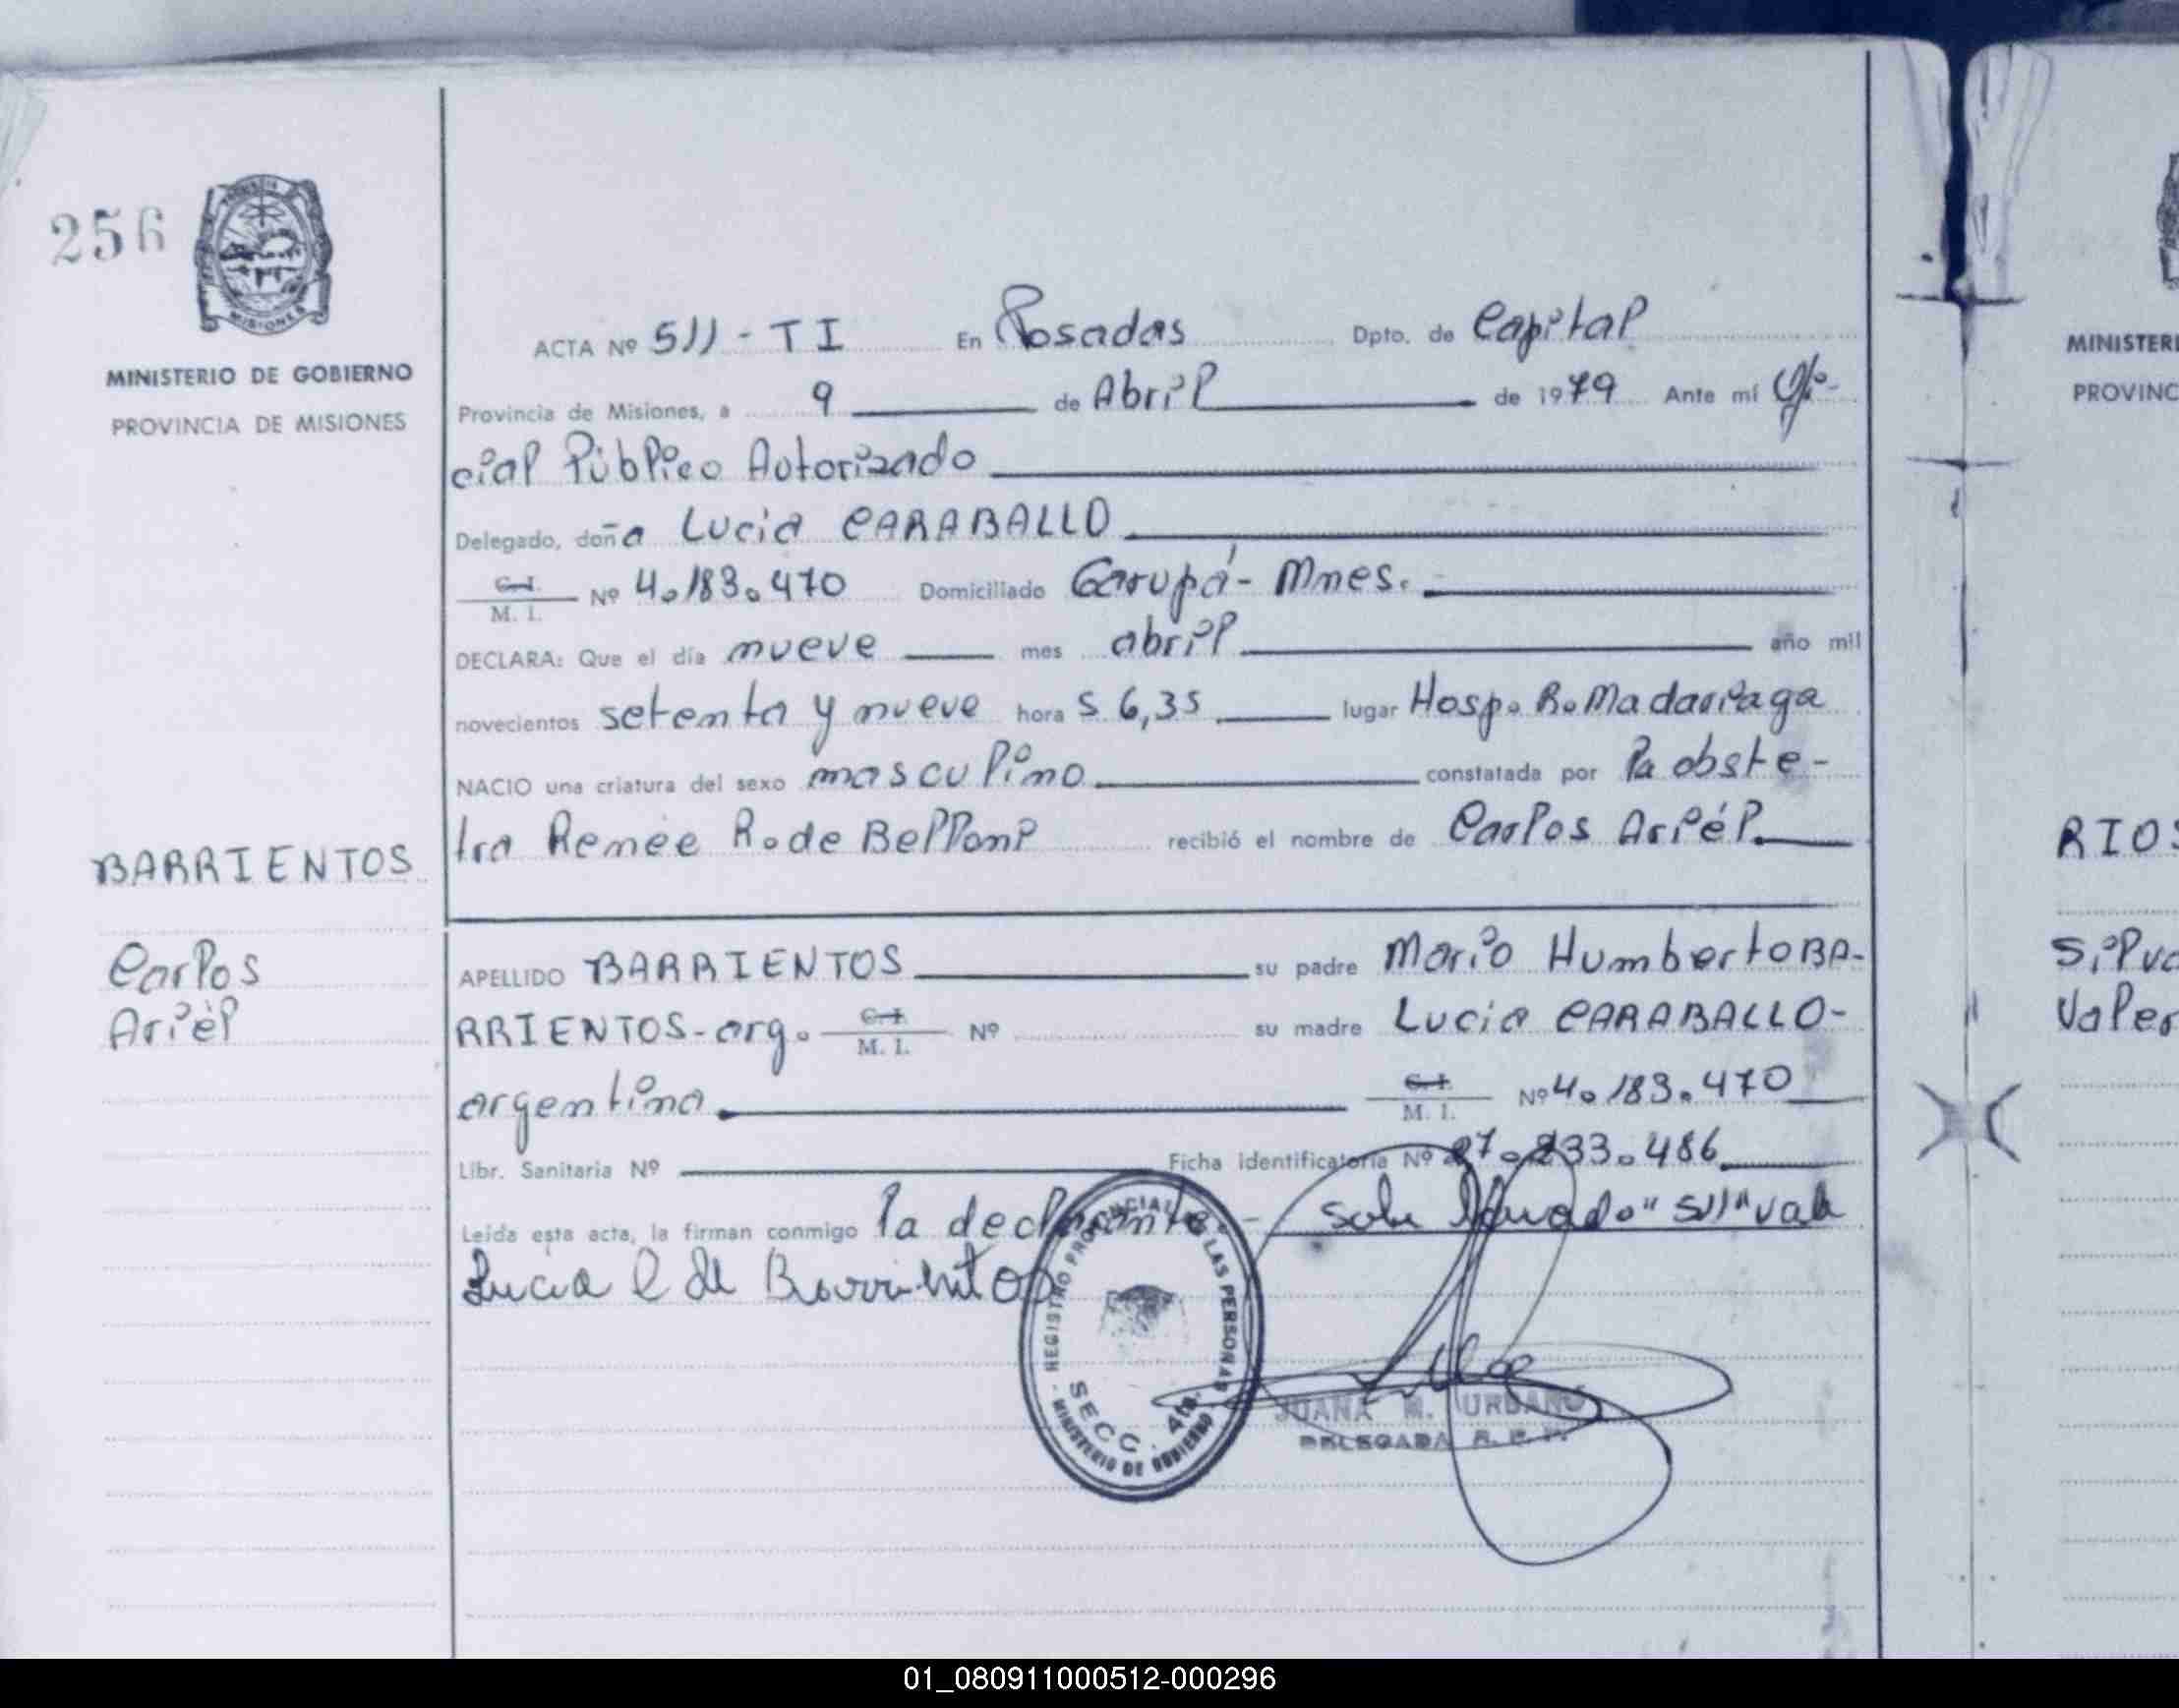 256
MISIONES
MINISTERIO DE GOBIERNO
PROVINCIA DE MISIONES
ACTA Nº 511 - T I En Posadas Dpto. de Capital
Provincia de Misiones, a 9 de Abril de 1979 Ante mí Ofi-
cial Público Autorizado
Delegado, doña Lucia CARABALLO
C.I. M. I. Nº 4.183.470 Domiciliado Garupá - Mnes.
DECLARA: Que el día nueve mes abril año mil
novecientos setenta y nueve hora s 6,35 lugar Hosp. R. Madariaga
NACIO una criatura del sexo masculino constatada por la obste-
tra Renée R. de Belloni recibió el nombre de Carlos Ariél
BARRIENTOS
Carlos
Ariél
APELLIDO BARRIENTOS su padre Mario Humberto BA-
RRIENTOS - arg. C.I. M. I. Nº su madre Lucia CARABALLO -
argentina C.I. M. I. Nº 4.183.470
Libr. Sanitaria Nº Ficha identificatoria Nº 27.233.486
Leida esta acta, la firman conmigo la declarante - sobre "511" vale
Lucia C de Barrientos
REGISTRO PROVINCIAL DE LAS PERSONAS
SECC. 4ta.
MINISTERIO DE GOBIERNO
JUANA M. URBANO
DELEGADA R. P. P.
MINISTERI
PROVINC
RIOS
Silva
Valer
01_080911000512-000296